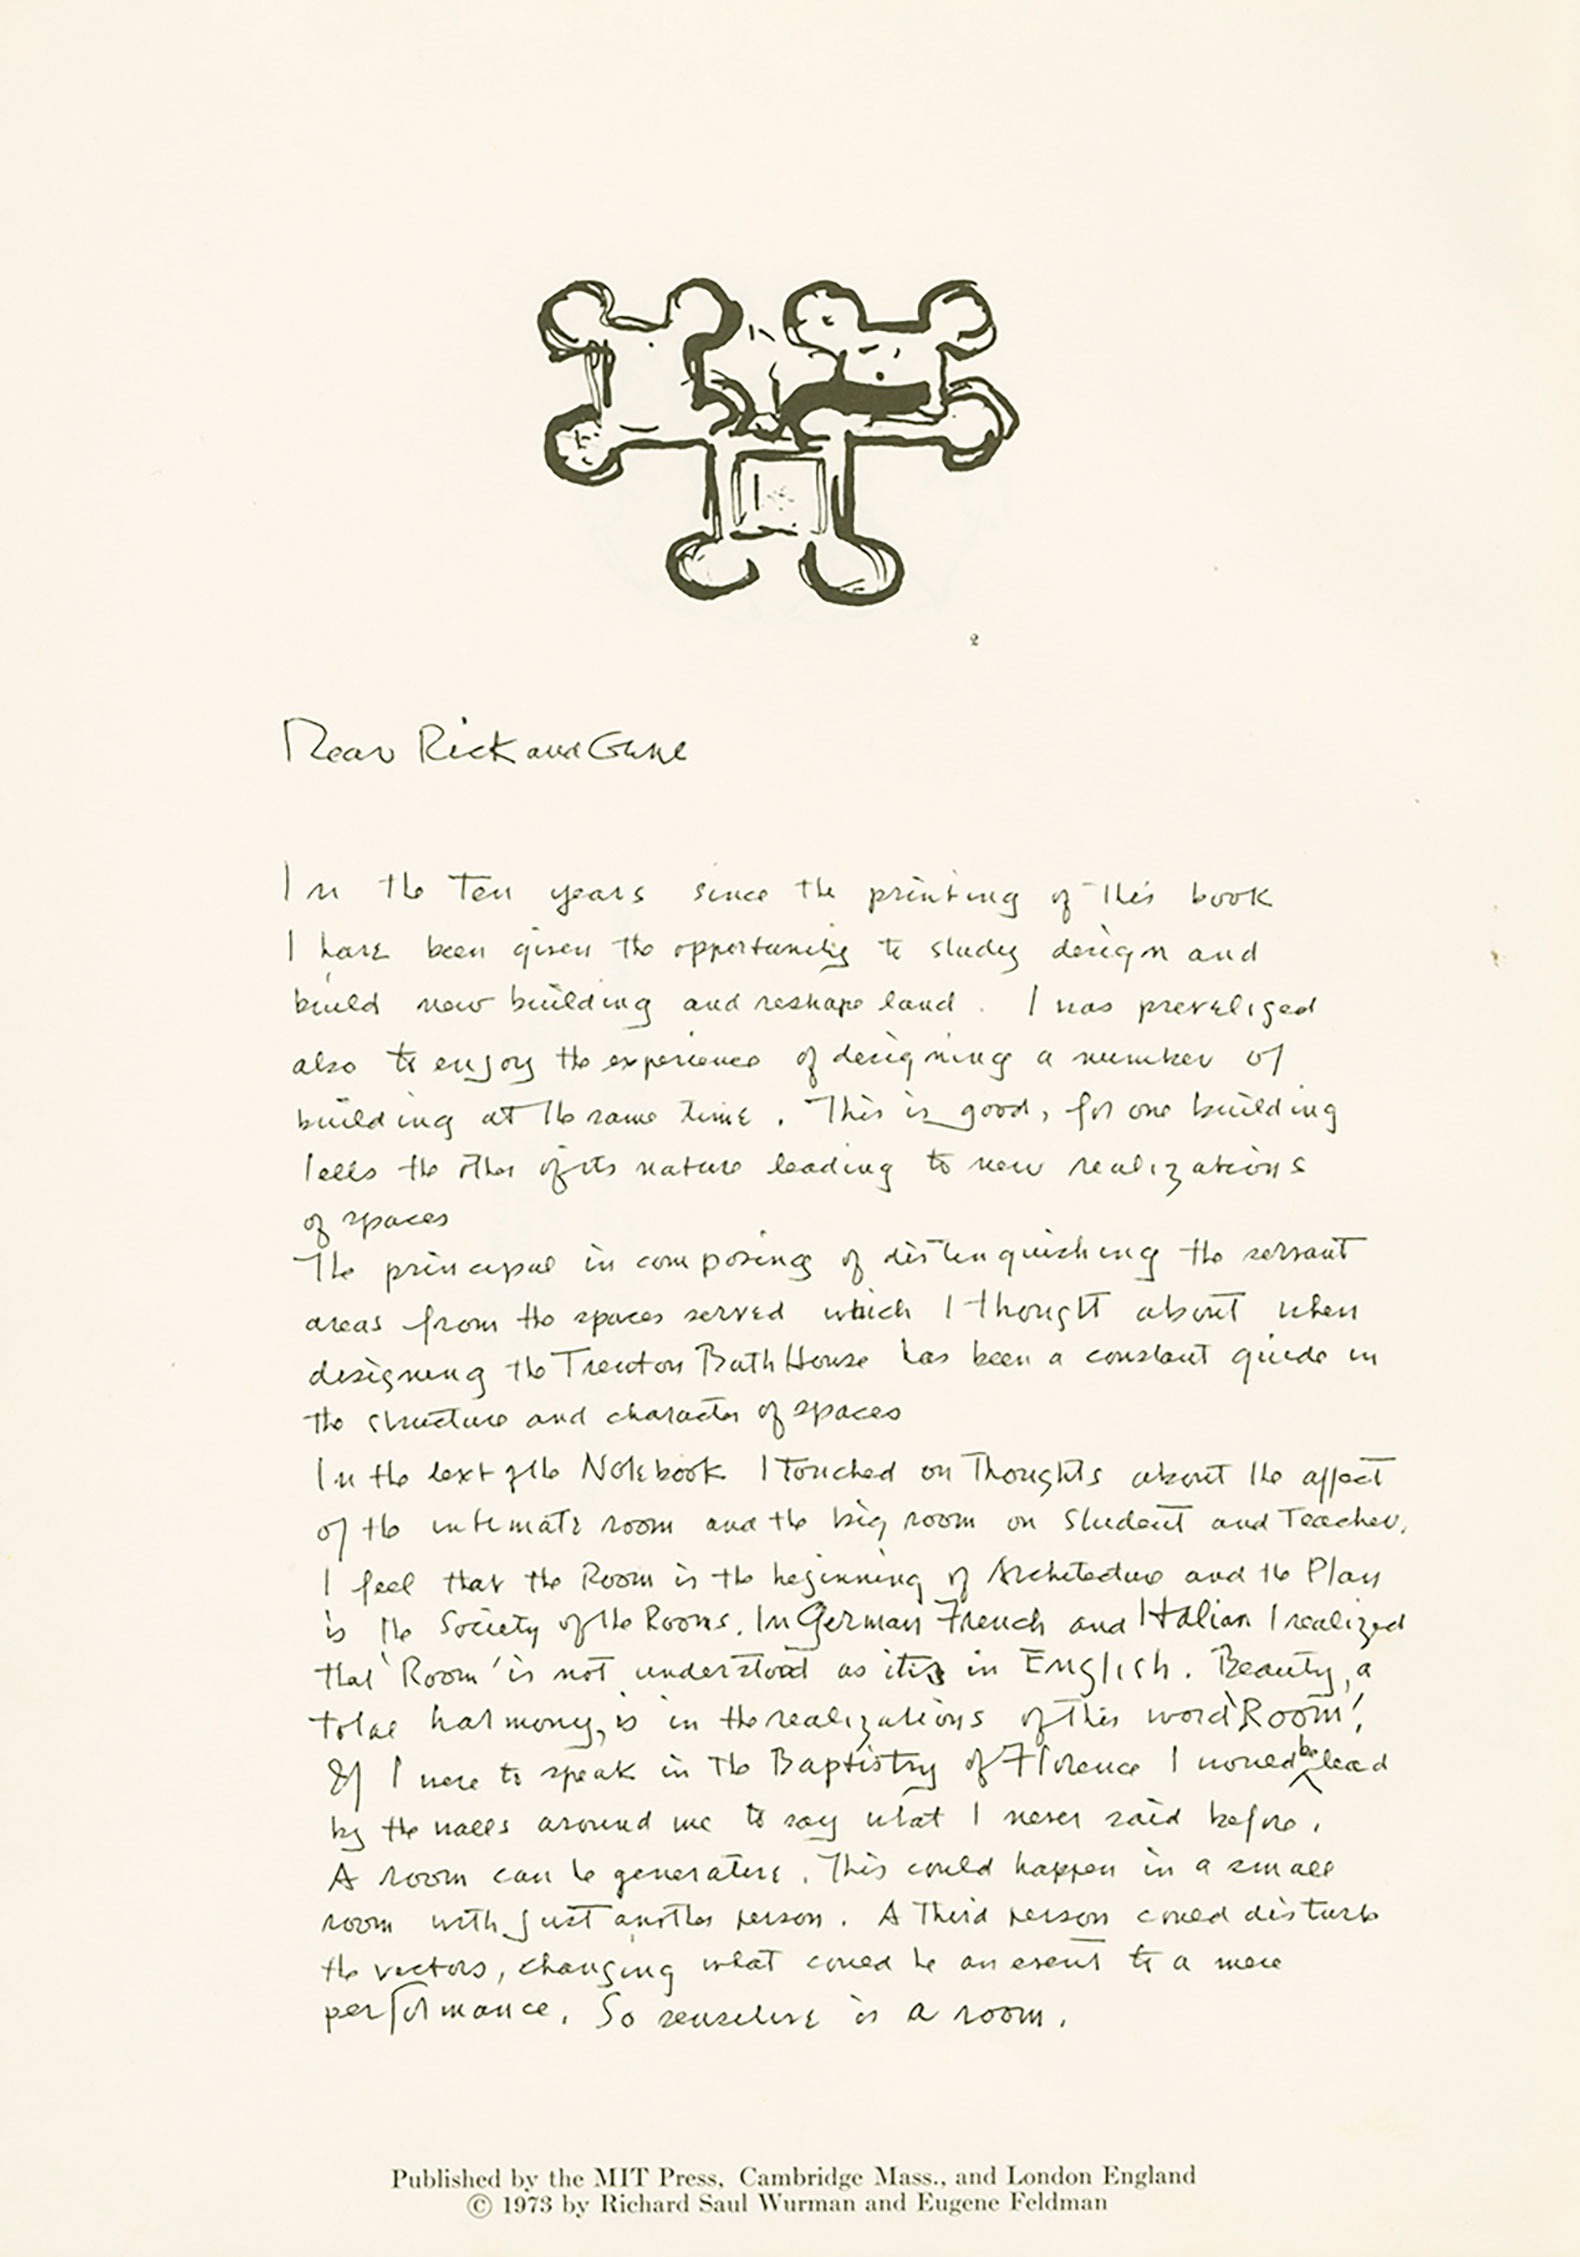 2
Dear Rick and Gene
In the Ten years since the printing of this book
I have been given the opportunity to study design and
build new building and reshape land. I was preveliged
also to enjoy the experience of designing a number of
building at the same time. This is good, for one building
tells the other of its nature leading to new realizations
of spaces
The principal in composing of distinquishing the servant
areas from the spaces served which I thought about when
designing the Trenton Bath House has been a constant guide in
the structure and character of spaces
In the text of the Notebook I Touched on Thoughts about the affect
of the intimate room and the big room on Student and Teacher.
I feel that the Room is the beginning of Architecture and the Plan
is the Society of the Rooms. In German French and Italian I realized
that 'Room' is not understood as it is in English. Beauty, a
total harmony, is in the realizations of this word 'Room'.
If I were to speak in the Baptistry of Florence I would be lead
by the walls around me to say what I never said before.
A room can be generative. This could happen in a small
room with just another person. A Third person could disturb
the vectors, changing what could be an event to a mere
performance. So sensitive is a room.
Published by the MIT Press, Cambridge Mass., and London England
© 1973 by Richard Saul Wurman and Eugene Feldman